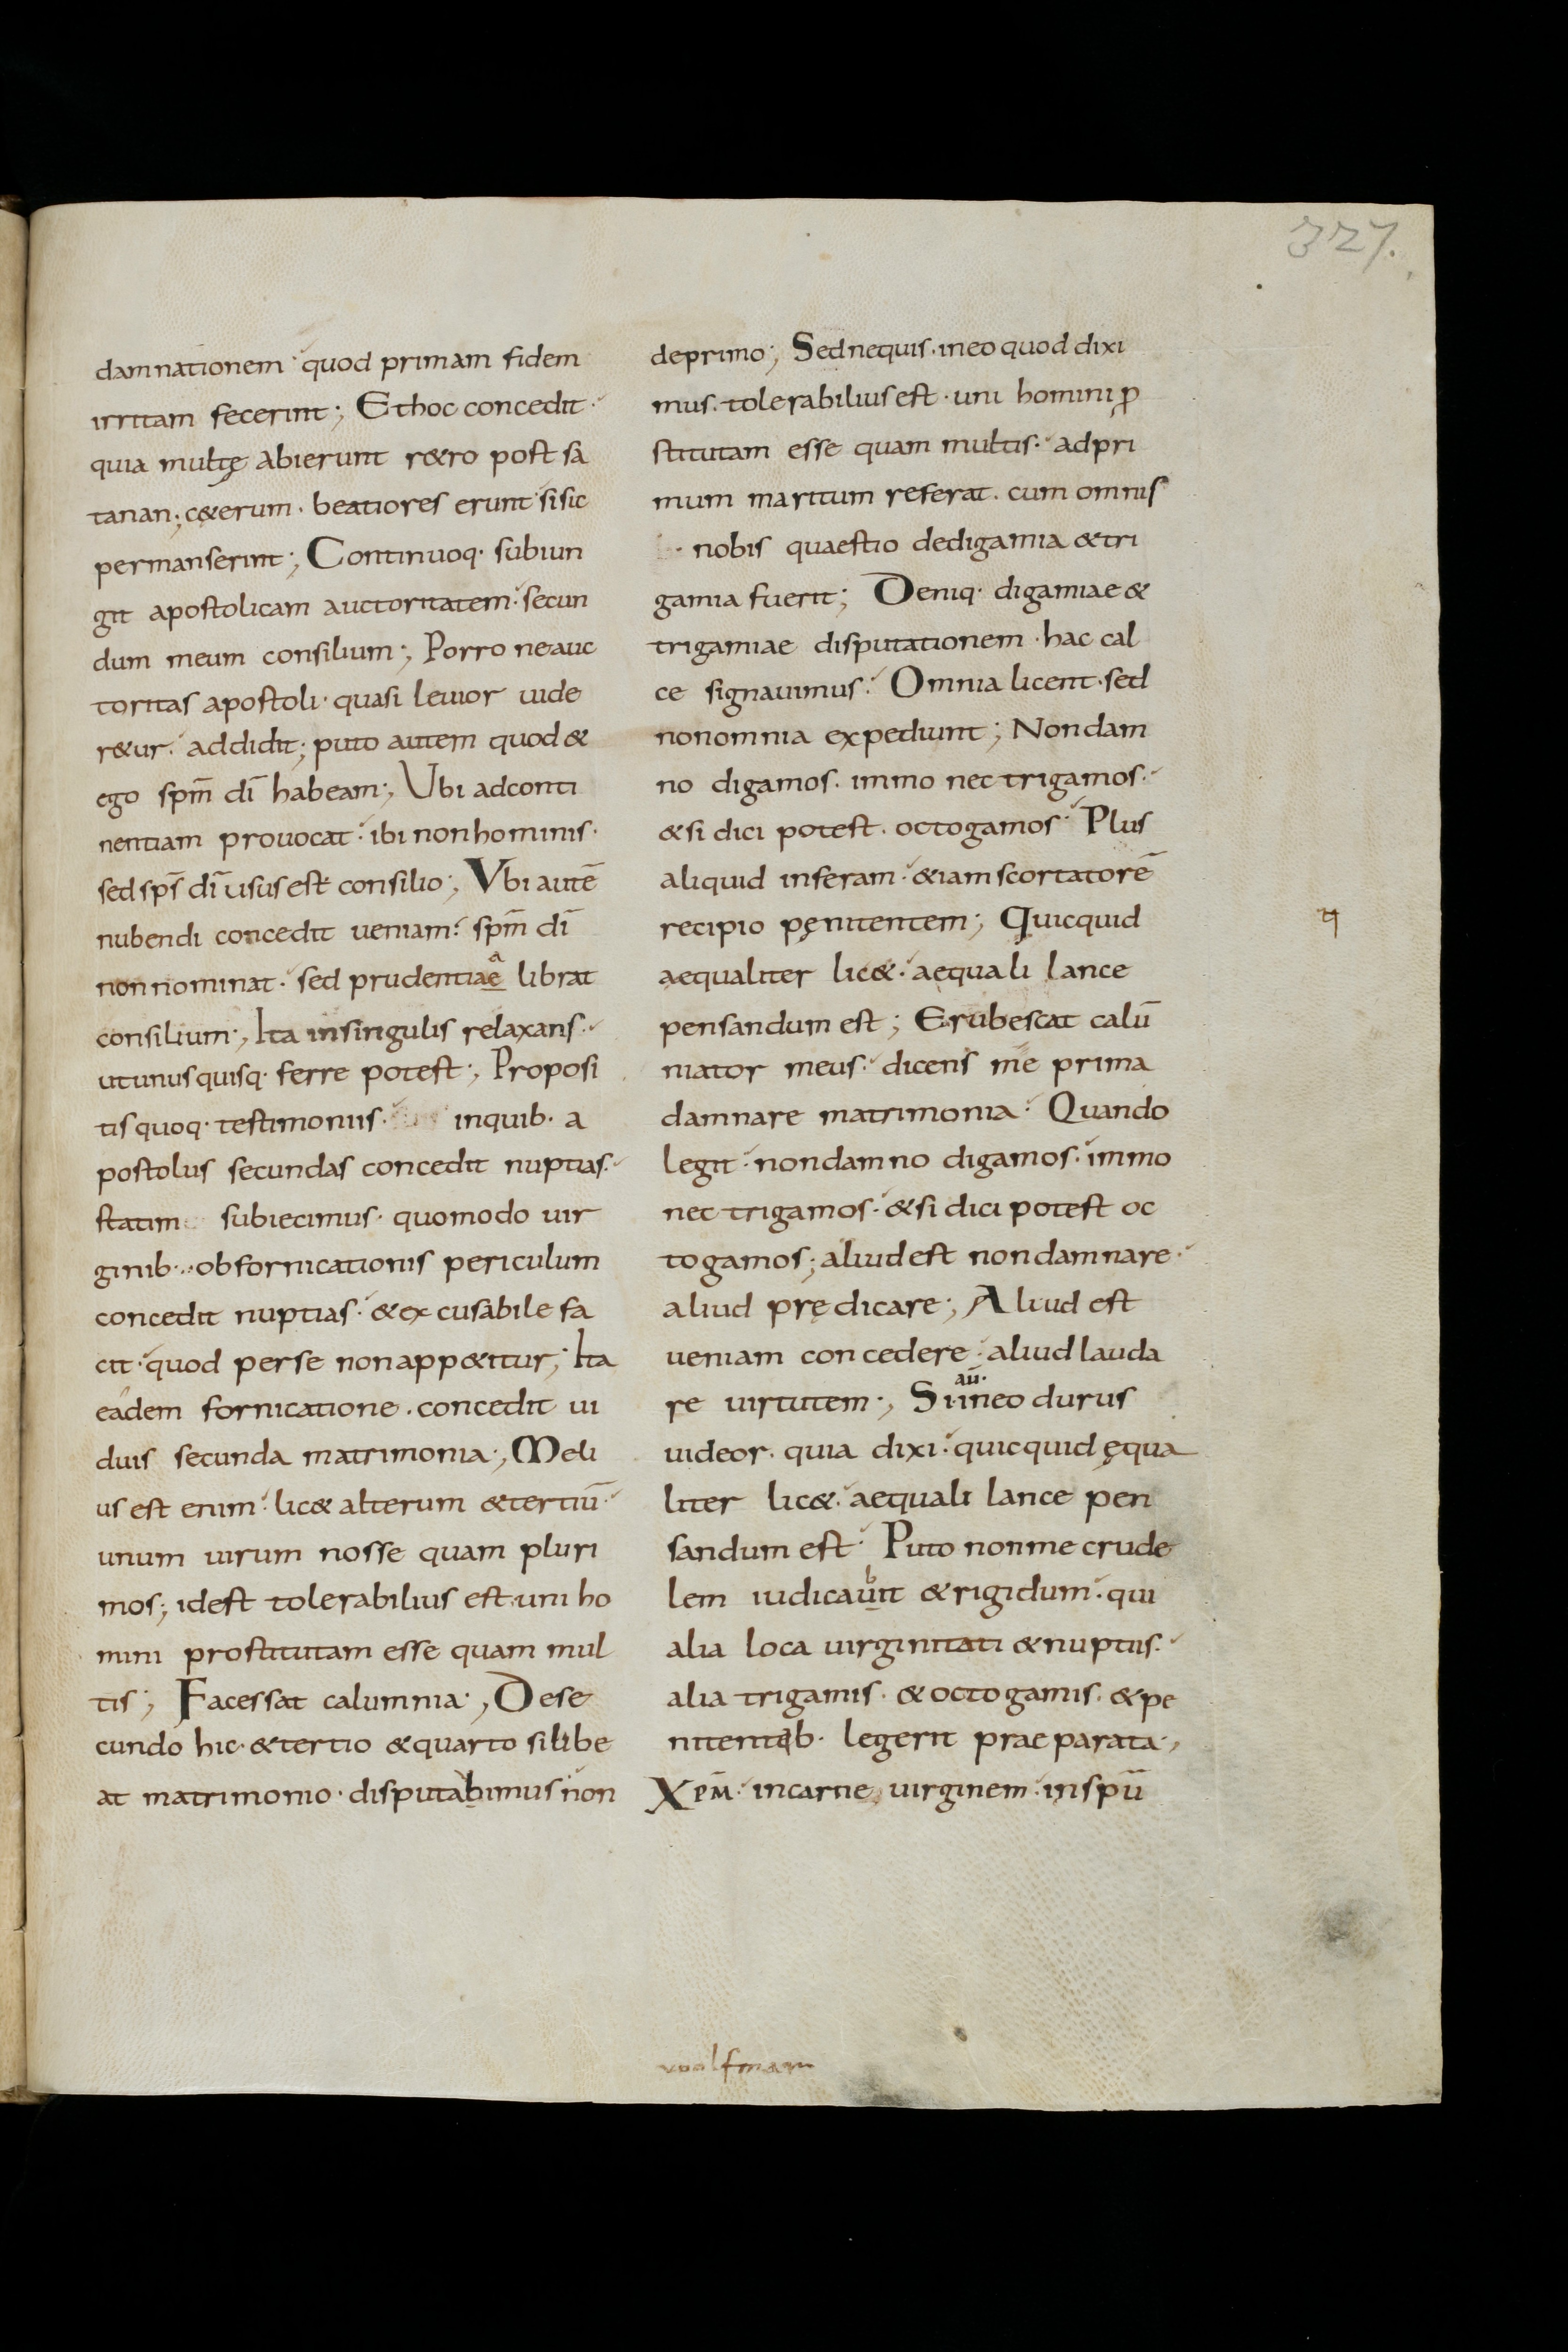 327.
damnationem · quod primam fidem
irritam fecerint; Et hoc concedit ·
quia multę abierunt r&ro post sa
tanan; c&erum · beatiores erunt si sic
permanserint; Continuoq· subiun
git apostolicam auctoritatem · secun
dum meum consilium; Porro ne auc
toritas apostoli · quasi leuior uide
r&ur · addidit; puto autem quod &
ego spm̄ dī habeam; Ubi ad conti
nentiam prouocat · ibi non hominis ·
sed sps̄ dī usus est consilio; Vbi autē
nubendi concedit ueniam · spm̄ dī
non nominat · sed prudentiae librat
a
consilium; Ita in singulis relaxans ·
ut unus quisq· ferre potest; Proposi
tis quoq· testimoniis · in quib· a
postolus secundas concedit nuptias ·
statim subiecimus · quomodo uir
ginib· · ob fornicationis periculum
concedit nuptias · & excusabile fa
cit · quod per se non app&itur; Ita
eadem fornicatione · concedit ui
duis secunda matrimonia; Meli
us est enim · lic& alterum & tertiū ·
unum uirum nosse quam pluri
mos; id est tolerabilius est · uni ho
mini prostitutam esse quam mul
tis; Facessat calumnia; De se
cundo hic · & tertio & quarto si libe
at matrimonio · disputabimus non
deprimo; Sed nequis · in eo quod dixi
mus · tolerabilius est · uni homini ꝓ
stitutam esse quam multis · ad pri
mum maritum referat · cum omnis
· nobis quaestio de digamia & tri
gamia fuerit; Deniq· digamiae &
trigamiae disputationem · hac cal
ce signauimus · Omnia licent · sed
non omnia expediunt; Non dam
no digamos · immo nec trigamos ·
& si dici potest · octogamos · Plus
aliquid inferam · &iam scortatorē
recipio pęnitentem; Quicquid
aequaliter lic& · aequali lance
pensandum est; Erubescat calū
niator meus · dicens me prima
damnare matrimonia · Quando
legit · non damno digamos · immo
nec trigamos · & si dici potest oc
togamos; aliud est non damnare ·
aliud prędicare; Aliud est
ueniam concedere · aliud lauda
aū·
re uirtutem; Si in eo durus
uideor · quia dixi · quicquid ęqua
liter lic& · aequali lance pen
sandum est · Puto non me crude
b
lem iudicauit & rigidum · qui
alia loca uirginitati & nuptiis ·
alia trigamis · & octogamis · & pe
nitentib· legerit praeparata;
Xp̄m · in carne uirginem · in spū
uuolfmann